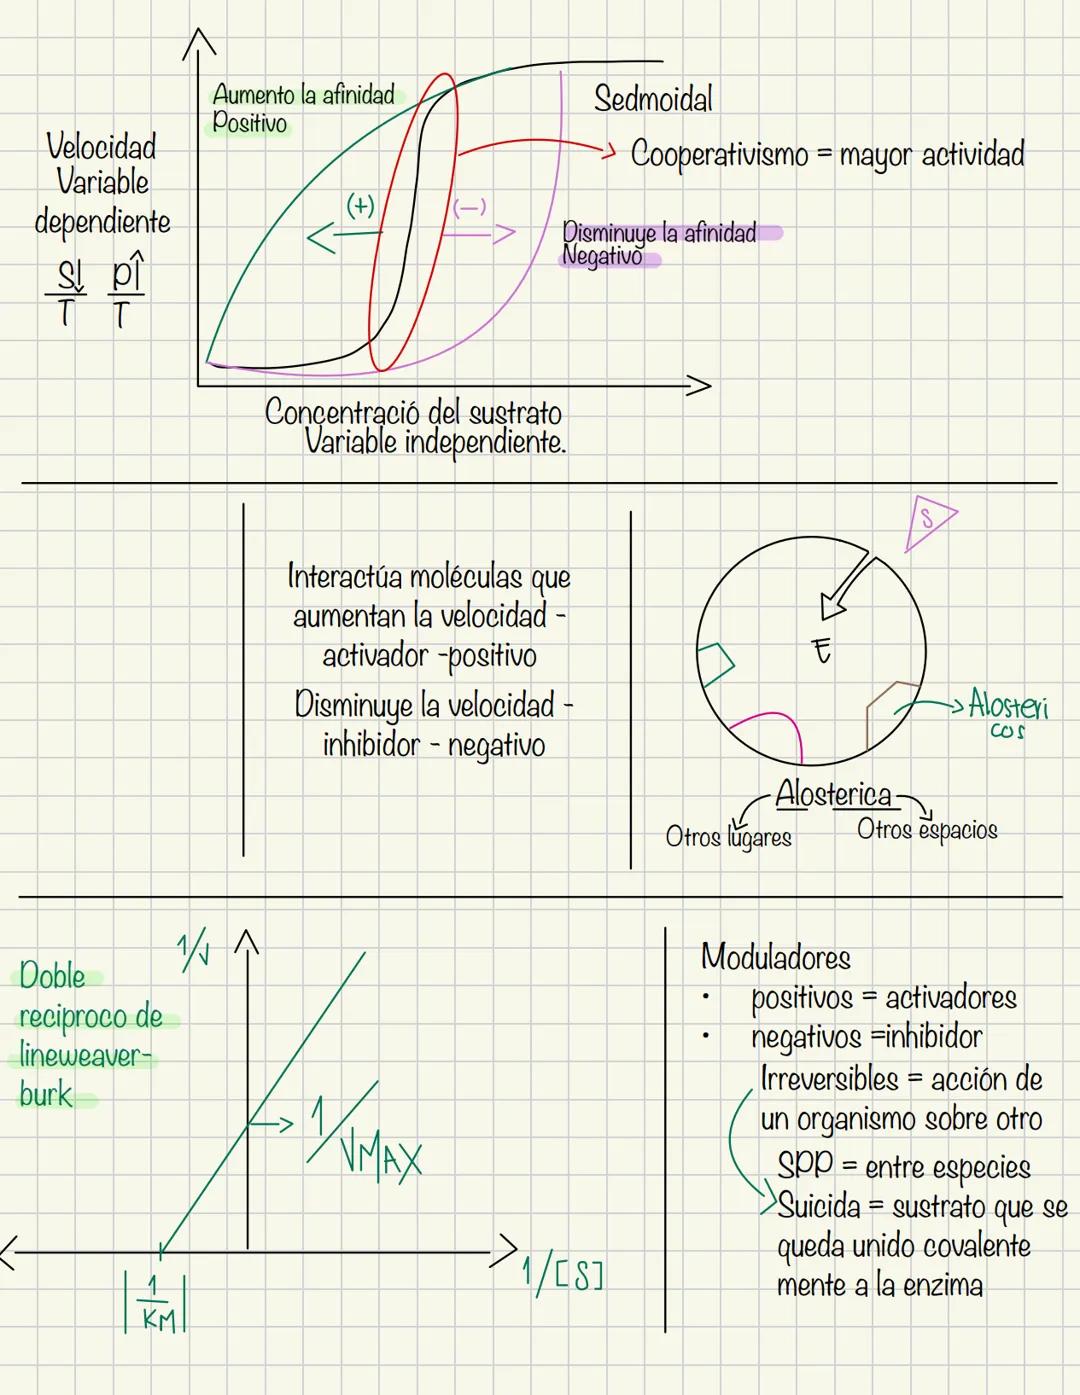 Aumento la afinidad
Positivo
Sedmoidal
Cooperativismo = mayor actividad
Velocidad
Variable
dependiente
S↓ p↑
T T
(+)
(—)
Disminuye la afinidad
Negativo
Concentració del sustrato
Variable independiente.
Interactúa moléculas que
aumentan la velocidad -
activador -positivo
Disminuye la velocidad -
inhibidor - negativo
S
E
Alosteri
cos
Alosterica
Otros lugares
Otros espacios
Doble
reciproco de
lineweaver-
burk
1/V
1/VMAX
1/[S]
|1/KM|
Moduladores
• positivos = activadores
• negativos =inhibidor
Irreversibles = acción de
un organismo sobre otro
SPP = entre especies
Suicida = sustrato que se
queda unido covalente
mente a la enzima